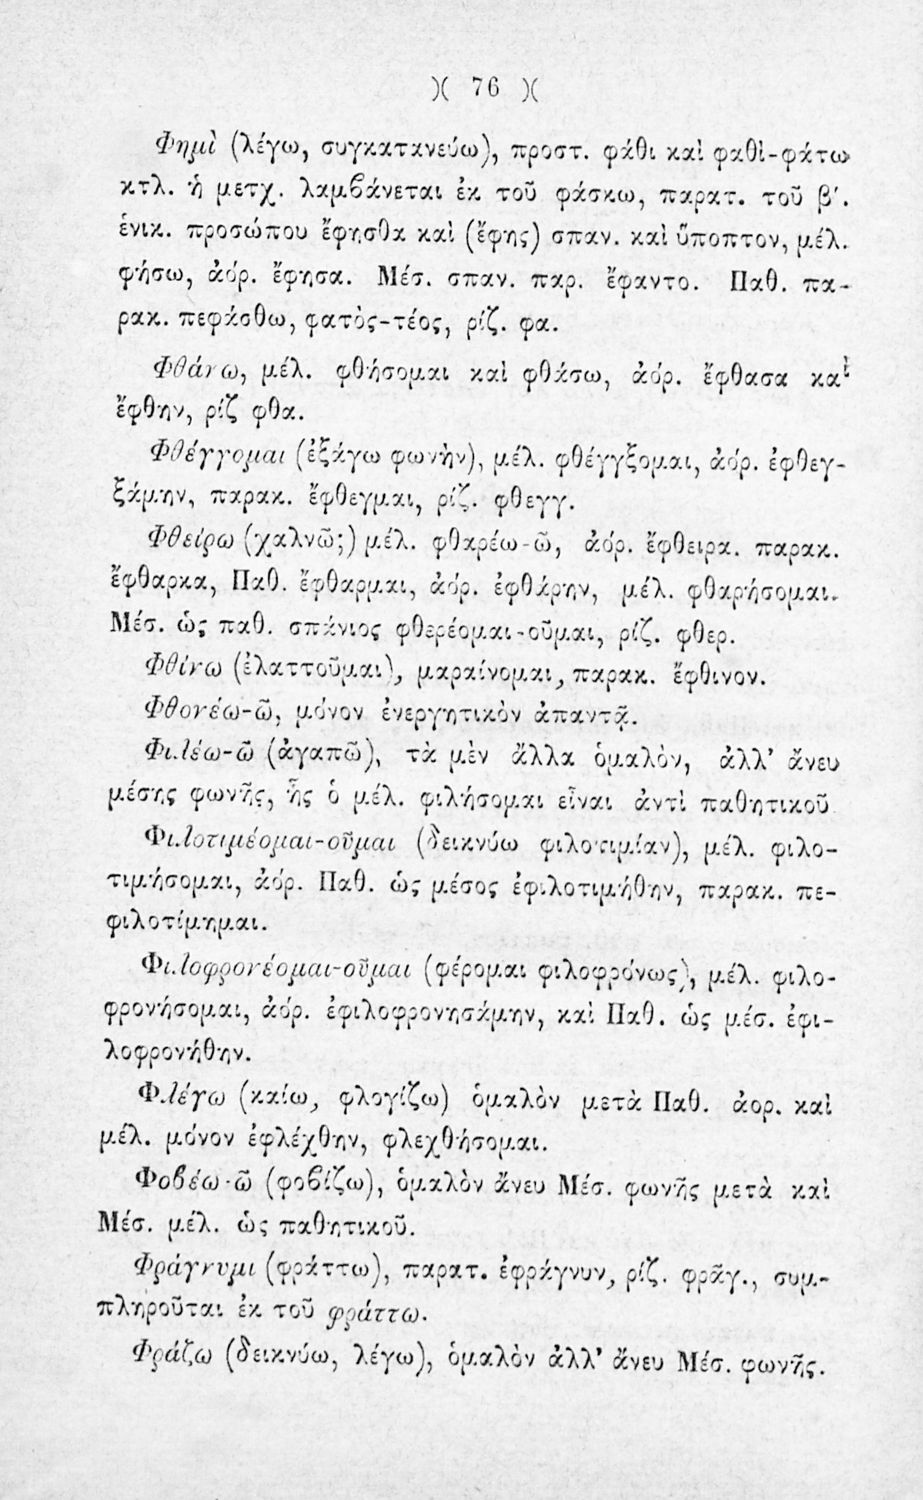 )( 76 )(
Φημὶ (λέγω, συγκατανεύω), προστ. φάθι καὶ φαθὶ-φάτω
κτλ. ἡ μετχ. λαμβάνεται ἐκ τοῦ φάσκω, παρατ. τοῦ β΄.
ἑνικ. προσώπου ἔφησθα καὶ (ἔφης) σπαν. καὶ ὕποπτον, μέλ.
φήσω, ἀόρ. ἔφησα. Μέσ. σπαν. παρ. ἔφαντο. Παθ. πα-
ρακ. πεφάσθω, φατὸς-τέος, ρίζ. φα.
Φθάνω, μέλ. φθήσομαι καὶ φθάσω, ἀόρ. ἔφθασα καὶ
ἔφθην, ρίζ φθα.
Φθέγγομαι (ἐξάγω φωνὴν), μέλ. φθέγγξομαι, ἀόρ. ἐφθεγ-
ξάμην, παρακ. ἔφθεγμαι, ρίζ. φθεγγ.
Φθείρω (χαλνῶ;) μέλ. φθαρέω-ῶ, ἀόρ. ἔφθειρα. παρακ.
ἔφθαρκα, Παθ. ἔφθαρμαι, ἀόρ. ἐφθάρην, μέλ. φθαρήσομαι.
Μέσ. ὡς παθ. σπάνιος φθερέομαι-οῦμαι, ρίζ. φθερ.
Φθίνω (ἐλαττοῦμαι), μαραίνομαι, παρακ. ἔφθινον.
Φθονέω-ῶ, μόνον ἐνεργητικὸν ἀπαντᾷ.
Φιλέω-ῶ (ἀγαπῶ), τὰ μὲν ἄλλα ὁμαλὸν, ἀλλ’ ἄνευ
μέσης φωνῆς, ἧς ὁ μέλ. φιλήσομαι εἶναι ἀντὶ παθητικοῦ
Φιλοτιμέομαι-οῦμαι (δεικνύω φιλοτιμίαν), μέλ. φιλο-
τιμήσομαι, ἀόρ. Παθ. ὡς μέσος ἐφιλοτιμήθην, παρακ. πε-
φιλοτίμημαι.
Φιλοφρονέομαι-οῦμαι (φέρομαι φιλοφρόνως), μέλ. φιλο-
φρονήσομαι, ἀόρ. ἐφιλοφρονησάμην, καὶ Παθ. ὡς μέσ. ἐφι-
λοφρονήθην.
Φλέγω (καίω, φλογίζω) ὁμαλὸν μετὰ Παθ. ἀορ. καὶ
μέλ. μόνον ἐφλέχθην, φλεχθήσομαι.
Φοβέω-ῶ (φοβίζω), ὁμαλὸν ἄνευ Μέσ. φωνῆς μετὰ καὶ
Μέσ. μέλ. ὡς παθητικοῦ.
Φράγνυμι (φράττω), παρατ. ἐφράγνυν, ρίζ. φρᾶγ., συμ-
πληροῦται ἐκ τοῦ φράττω.
Φράζω (δεικνύω, λέγω), ὁμαλὸν ἀλλ’ ἄνευ Μέσ. φωνῆς.